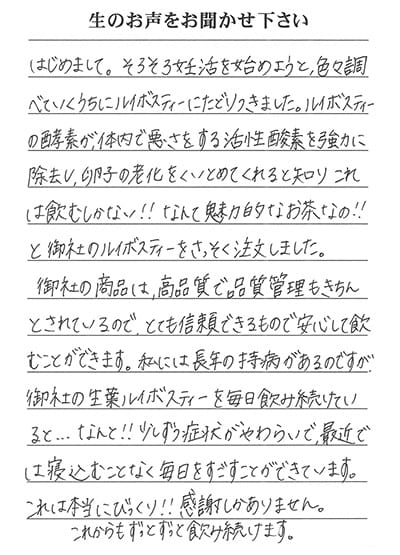 生のお声をお聞かせ下さい
はじめまして。そろそろ妊活を始めようと、色々調
べていくうちにルイボスティーにたどりつきました。ルイボスティー
の酵素が、体内で悪さをする活性酸素を強力に
除去し、卵子の老化をくいとめてくれると知り これ
は飲むしかない!! なんて魅力的なお茶なの!!
と御社のルイボスティーをさっそく注文しました。
御社の商品は、高品質で品質管理もきちん
とされているので、とても信頼できるもので安心して飲
むことができます。私には長年の持病があるのですが、
御社の生葉ルイボスティーを毎日飲み続けてい
ると…なんと!! 少しずつ症状がやわらいで、最近で
は寝込むことなく毎日をすごすことができています。
これは本当にびっくり!! 感謝しかありません。
これからもずっとずっと飲み続けます。